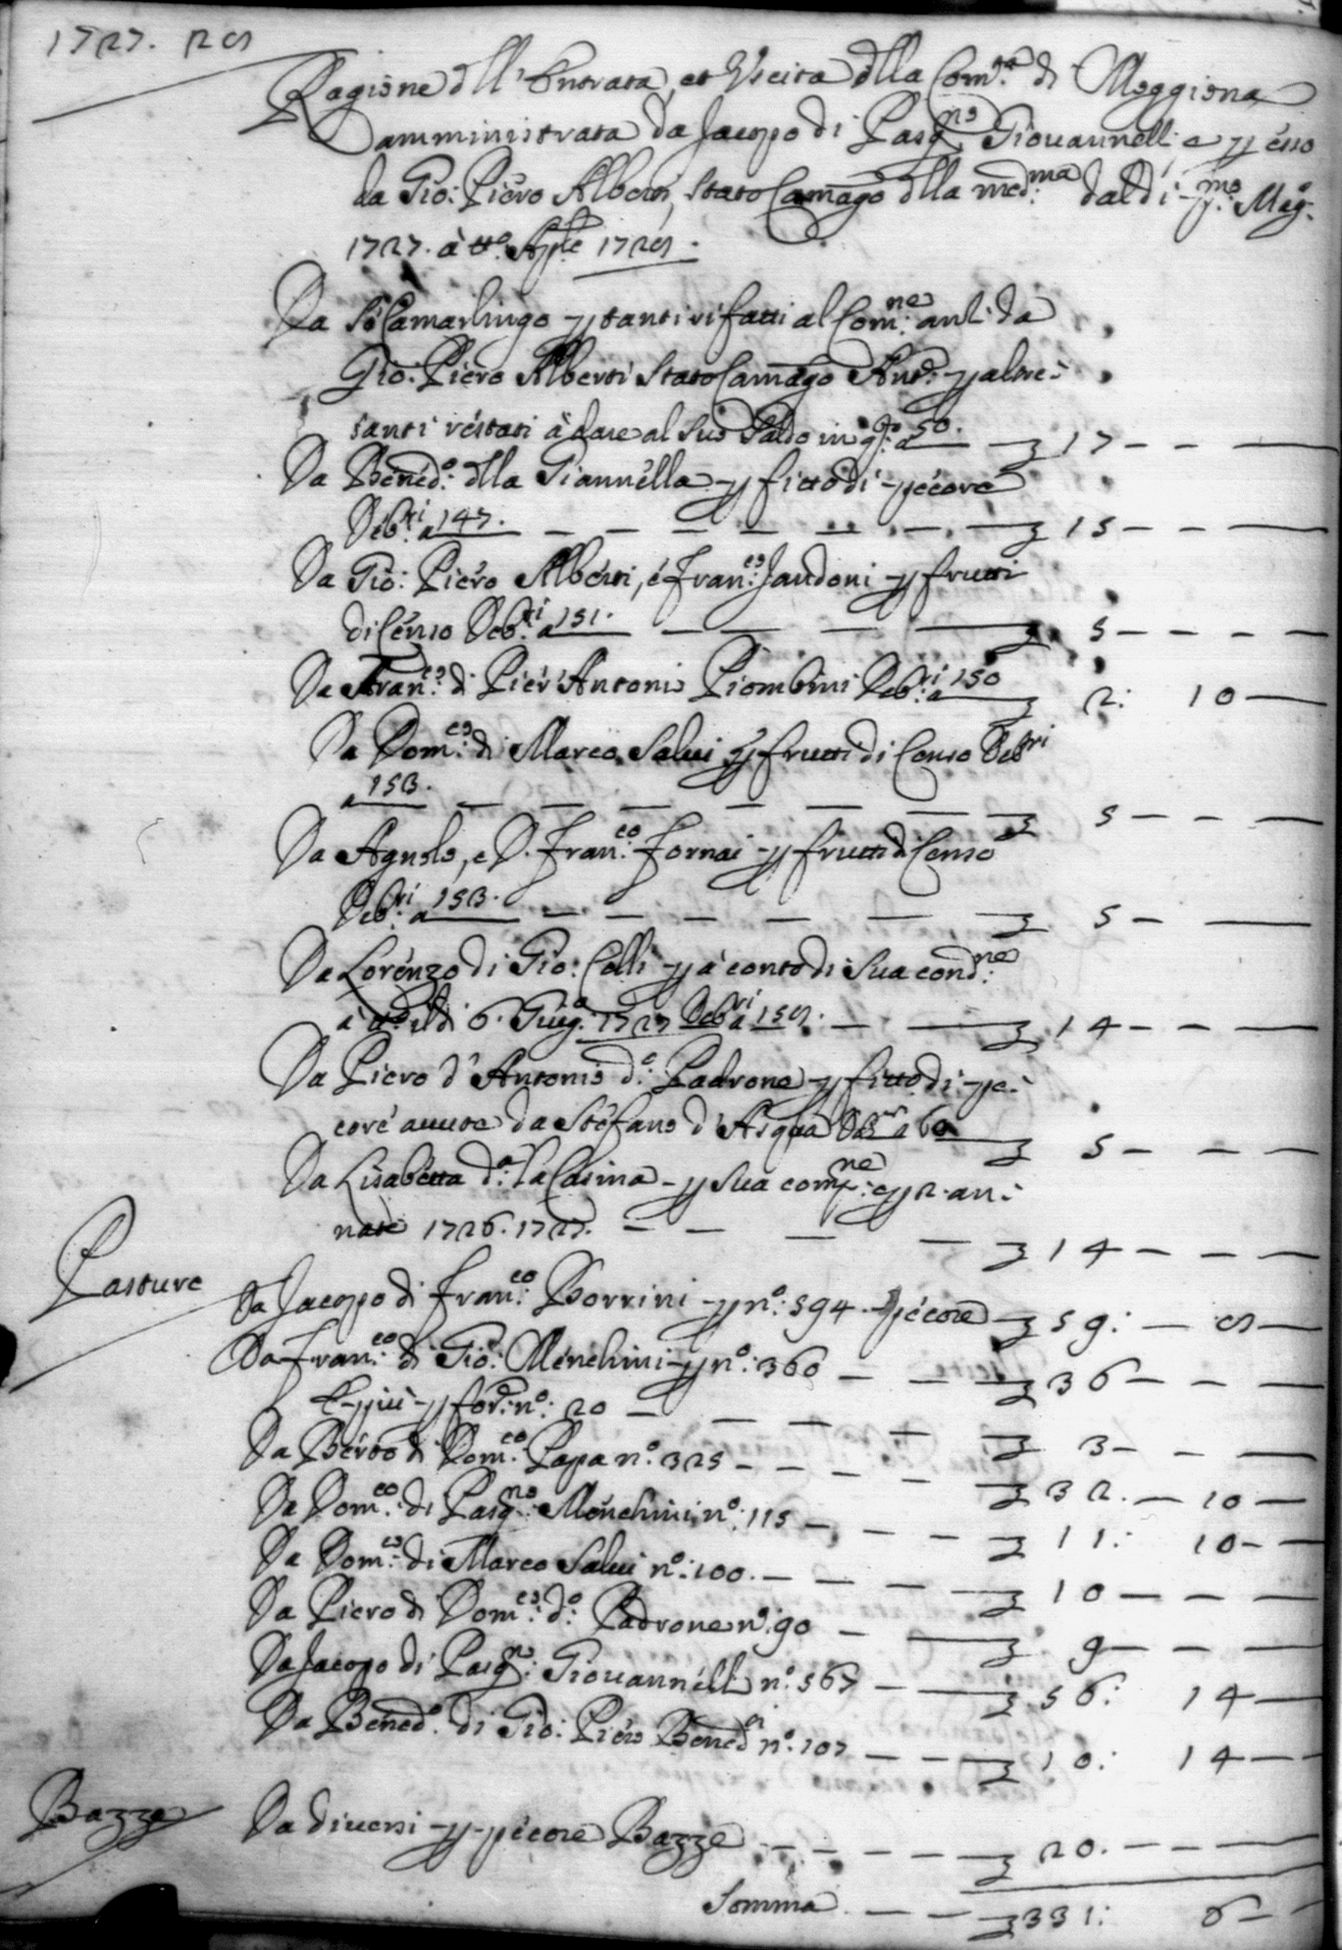 1727. 28
Ragione dll' Entrata, et Uscita dlla Com:tà di Moggiona
amministrata da Jacopo di Pasq:no Giovannelli e p esso
da Gio: Piero Alberti, stato Camgo dlla med:ma dal dì p:mo Mag:o
1727. à tto Aple 1728.
Da Sè Camarlingo p tanti rifatti al Com:ne ant: da
Gio: Piero Alberti stato Camgo And: p altre:
tanti restati à dare al suo Saldo in q:o a 50. — 17 — —
Da Bened:o dlla Giannella p fitto di pecore
Deb:ri a 147. — — — — — — 15 — —
Da Gio: Piero Alberti, e Fran:co Jandoni p frutti
di Censo Deb:ri a 151. — — — — 5 — — — —
Da Fran:co di Pier' Antonio Piombini Deb:ri a 150 — 2: 10 —
Da Dom:co di Marco Salvi p frutti di Censo Deb:ri
a 153. — — — — — — — 5 — — —
Da Agnolo, e D. Fran:co Fornai p frutti di Censo
Deb:ri a 153. — — — — — — 5 — —
Da Lorenzo di Gio: Colli p à conto di sua cond:ne
à tto il dì 6. Giug:o 1727 Deb:ri a 158. — — 14 — — —
Da Piero d' Antonio d:o Padrone p fitto di pe:
core avute da Stefano d' Asqua Deb:ri a 60 — 5 — — —
Da Lisabetta d:a la Casina p sua com:ne e p 2. an:
nate 1726. 1727. — — — — 14 — — —
Pasture
Da Jacopo di Fran:co Borrini p n:o: 594. pecore — 59: — 8 —
Da Fran:co di Gio: Menchini p n:o: 360 — — — 36 — — —
E più p for: n:o: 20 — — — — — 3 — — —
Da Berto di Dom:co Papa n:o 325 — — — — — 32. — 10 —
Da Dom:co di Pasq:no Menchini n:o: 115 — — — — 11: 10 — —
Da Dom:co di Marco Salvi n:o: 100. — — — — 10 — — —
Da Piero di Dom:co d:o Padrone n:o: 90 — — 9 — — —
Da Jacopo di Pasq:no Giovannelli n:o 567 — — 56: 14 —
Da Bened:o di Gio: Piero Bened:i n:o: 107 — — — 10: 14 — —
Bazze
Da diversi p pecore Bazze — — — — — 20. — — — —
Somma — — — 331: 6 — —